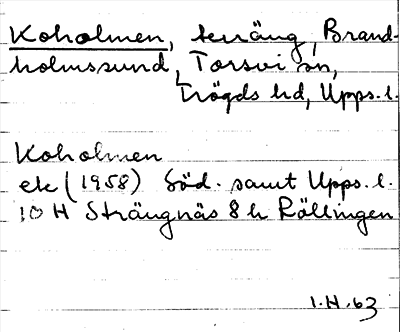 Koholmen, terräng, Brand-
holmssund, Torsvi sn,
Trögds hd, Upps. l.
Koholmen
ek (1958) Söd. samt Upps. l.
10 H Strängnäs 8 h Rällingen
1.H.63